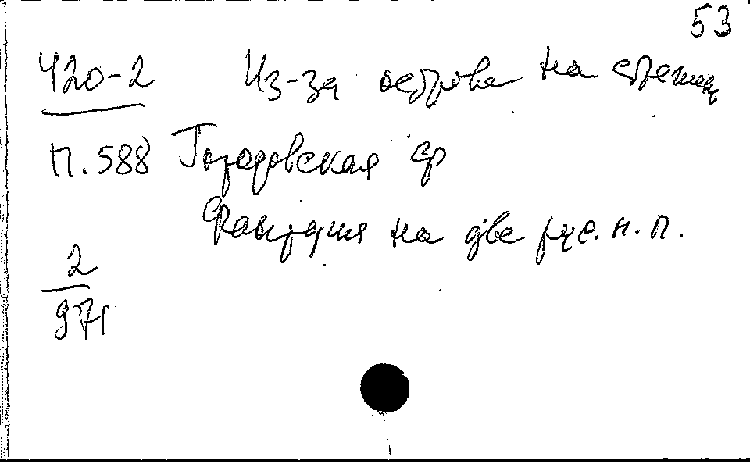 53
420-2 Из-за острова на стрежень
П. 588 Городовская ср
Фантазия на две рус. н. п.
2
971